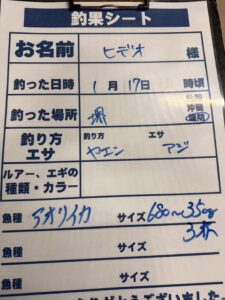 釣果シート
お名前 ヒデオ 様
釣った日時 1月17日 時頃
釣った場所 堺 沖堤 堤防
釣り方 エサ 釣り方 ヤエン エサ アジ
ルアー、エギの種類・カラー
魚種 アオリイカ サイズ 680〜350g
3杯
魚種 サイズ
魚種 サイズ
ありがとうございました